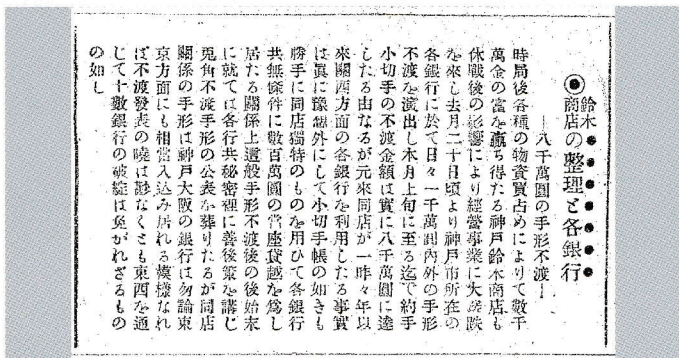 ◉鈴木商店の整理と各銀行
―八千萬圓の手形不渡―
時局後各種の物資買占めによりて數千
萬金の富を贏ち得たる神戸鈴木商店も
休戰後の影響により經營事業に大蹉跌
を來し去月二十日頃より神戸市所在の
各銀行に於て日々一千萬圓內外の手形
不渡を演出し本月上旬に至る迄で約手
小切手の不渡金額は實に八千萬圓に達
したる由なるが元來同店が一昨々年以
來關西方面の各銀行を利用したる事實
は眞に豫想外にして小切手帳の如きも
勝手に同店獨特のものを用ひて各銀行
共無條件に數百萬圓の當座貸越を爲し
居たる關係上這般手形不渡後の後始末
に就ては各行共秘密裡に善後策を講じ
兎角不渡手形の公表を葬りたるが同店
關係の手形は神戸大阪の銀行は勿論東
京方面にも相當入込み居れる模樣なれ
ば不渡發表の曉は尠なくとも東西を通
じて十數銀行の破綻は免がれざるもの
の如し